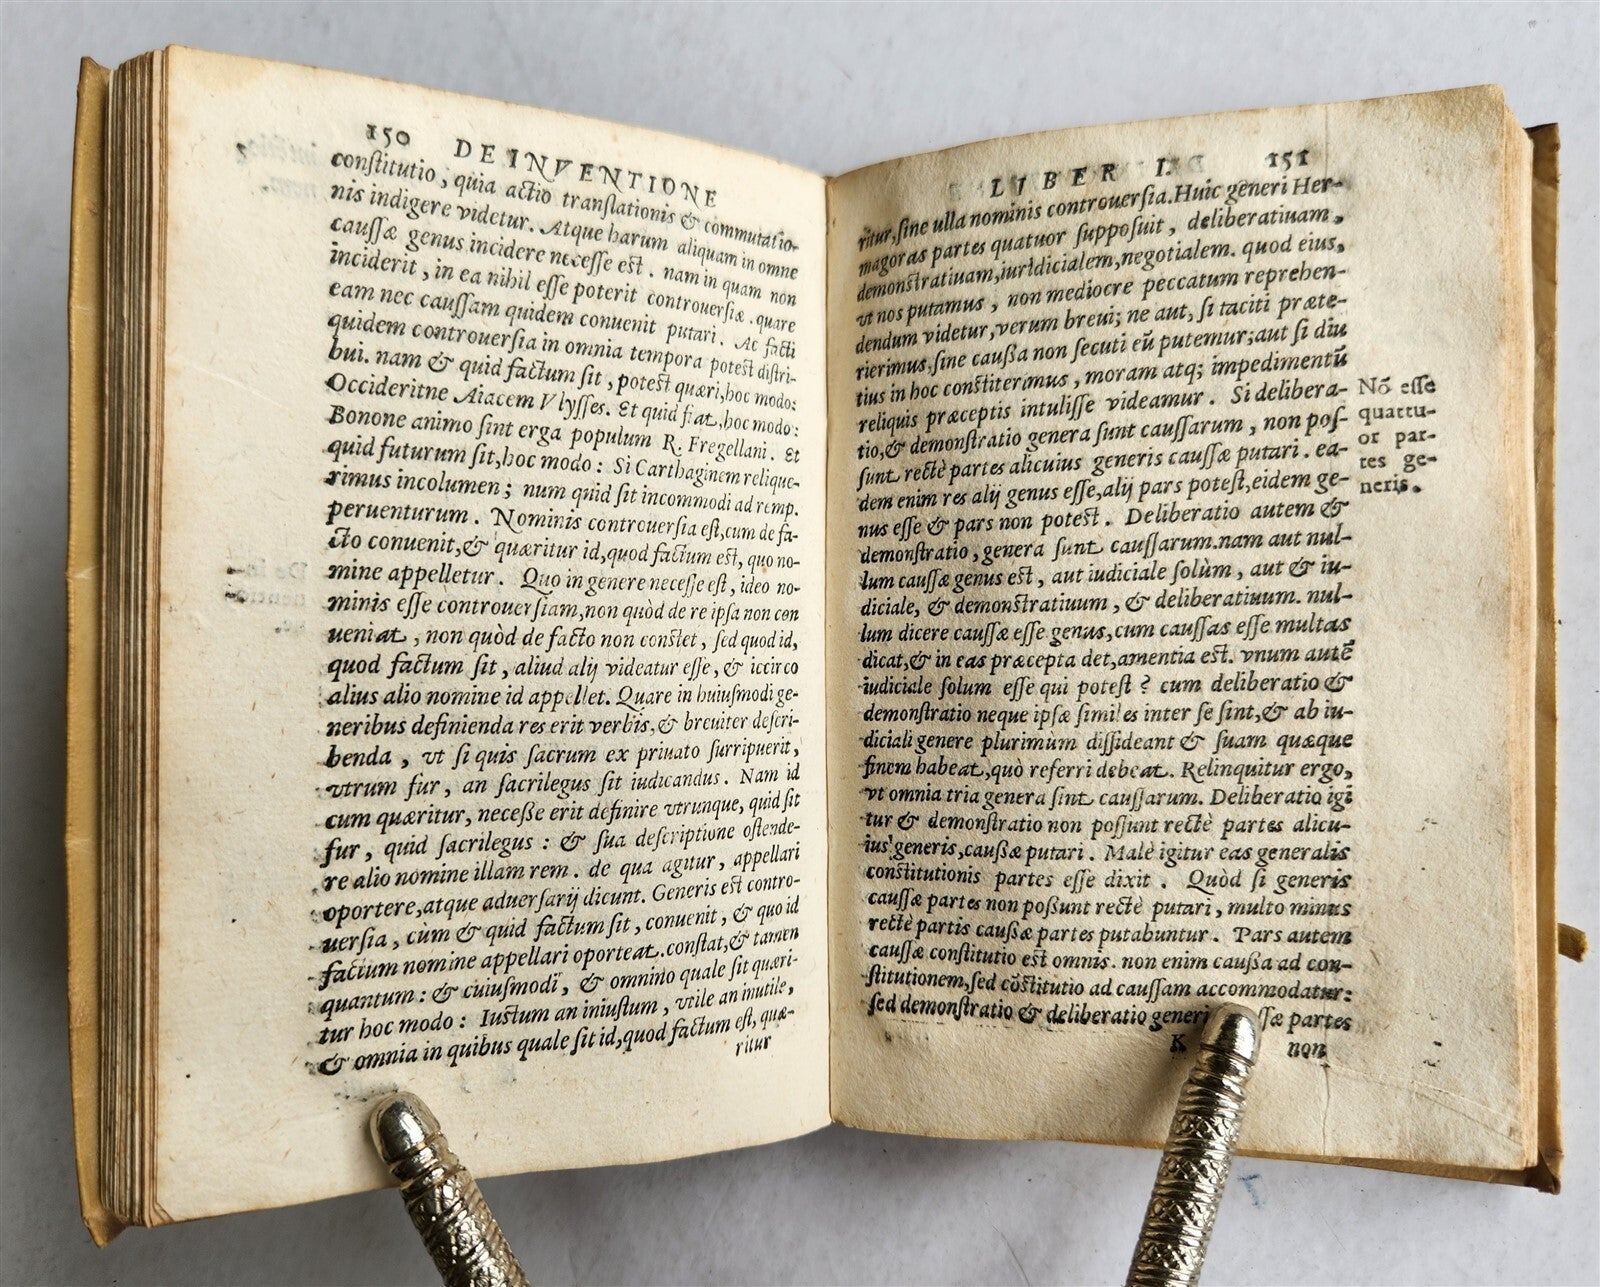 150 DE INVENTIONE
constitutio, quia actio translationis & commutatio-
nis indigere videtur. Atque harum aliquam in omne
caussæ genus incidere necesse est. nam in quam non
inciderit, in ea nihil esse poterit controuersiæ. quare
eam nec caussam quidem conuenit putari. Ac facti
quidem controuersia in omnia tempora potest distri-
bui. nam & quid factum sit, potest quæri, hoc modo:
Occideritne Aiacem Vlysses. Et quid fiat, hoc modo:
Bonone animo sint erga populum R. Fregellani. Et
quid futurum sit, hoc modo: Si Carthaginem relique-
rimus incolumen; num quid sit incommodi ad remp.
peruenturum. Nominis controuersia est, cum de fa-
cto conuenit, & quæritur id, quod factum est, quo no-
mine appelletur. Quo in genere necesse est, ideo no-
minis esse controuersiam, non quòd de re ipsa non con
ueniat, non quòd de facto non constet, sed quod id,
quod factum sit, aliud alij videatur esse, & iccirco
alius alio nomine id appellet. Quare in huiusmodi ge-
neribus definienda res erit verbis, & breuiter descri-
benda, vt si quis sacrum ex priuato surripuerit,
vtrum fur, an sacrilegus sit iudicandus. Nam id
cum quæritur, necesse erit definire vtrunque, quid sit
fur, quid sacrilegus: & sua descriptione ostende-
re alio nomine illam rem. de qua agitur, appellari
oportere, atque aduersarij dicunt. Generis est contro-
uersia, cùm & quid factum sit, conuenit, & quo id
factum nomine appellari oporteat. constat, & tamen
quantum: & cuiusmodi, & omnino quale sit quæri-
tur hoc modo: Iustum an iniustum, vtile an inutile,
& omnia in quibus quale sit id, quod factum est, quæ-
ritur
LIBER I. 151
ritur, sine ulla nominis controuersia. Huic generi Her-
magoras partes quatuor supposuit, deliberatiuam,
demonstratiuam, iuridicialem, negotialem. quod eius,
vt nos putamus, non mediocre peccatum reprehen-
dendum videtur, verum breui; ne aut, si taciti præte-
rierimus, sine caußa non secuti eū putemur; aut si diu
tius in hoc constiterimus, moram atq; impedimentū
reliquis præceptis intulisse videamur. Si delibera-
tio, & demonstratio genera sunt caussarum, non pos-
sunt rectè partes alicuius generis caussæ putari. ea-
dem enim res alij genus esse, alij pars potest, eidem ge-
nus esse & pars non potest. Deliberatio autem &
demonstratio, genera sunt caussarum. nam aut nul-
lum caussæ genus est, aut iudiciale solùm, aut & iu-
diciale, & demonstratiuum, & deliberatiuum. nul-
lum dicere caussæ esse genus, cum caussas esse multas
dicat, & in eas præcepta det, amentia est. vnum autē
iudiciale solum esse qui potest? cum deliberatio &
demonstratio neque ipsæ similes inter se sint, & ab iu-
diciali genere plurimùm dissideant & suam quæque
finem habeat, quò referri debeat. Relinquitur ergo,
vt omnia tria genera sint caussarum. Deliberatio igi
tur & demonstratio non possunt rectè partes alicu-
ius generis, caußæ putari. Malè igitur eas generalis
constitutionis partes esse dixit. Quòd si generis
caussæ partes non poßunt rectè putari, multo minus
rectè partis caußæ partes putabuntur. Pars autem
caussæ constitutio est omnis. non enim caußa ad con-
stitutionem, sed cōstitutio ad caussam accommodatur:
sed demonstratio & deliberatio generi ssæ partes
K non
Nō esse
quattu-
or par-
tes ge-
neris.